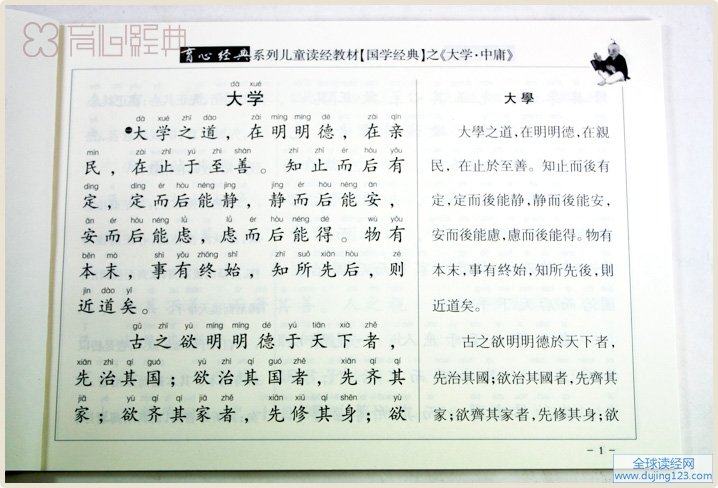 育心经典
育心经典系列儿童读经教材【国学经典】之《大学·中庸》
dà xué
大学
dà xué zhī dào zài míng míng dé zài qīn
大学之道，在明明德，在亲
mín zài zhǐ yú zhì shàn zhī zhǐ ér hòu yǒu
民，在止于至善。知止而后有
dìng dìng ér hòu néng jìng jìng ér hòu néng ān
定，定而后能静，静而后能安，
ān ér hòu néng lǜ lǜ ér hòu néng dé wù yǒu
安而后能虑，虑而后能得。物有
běn mò shì yǒu zhōng shǐ zhī suǒ xiān hòu zé
本末，事有终始，知所先后，则
jìn dào yǐ
近道矣。
gǔ zhī yù míng míng dé yú tiān xià zhě
古之欲明明德于天下者，
xiān zhì qí guó yù zhì qí guó zhě xiān qí qí
先治其国；欲治其国者，先齐其
jiā yù qí qí jiā zhě xiān xiū qí shēn yù
家；欲齐其家者，先修其身；欲
大學
大學之道，在明明德，在親
民，在止於至善。知止而後有
定，定而後能静，静而後能安，
安而後能慮，慮而後能得。物有
本末，事有終始，知所先後，則
近道矣。
古之欲明明德於天下者，
先治其國；欲治其國者，先齊其
家；欲齊其家者，先修其身；欲
- 1 -
全球读经网
www.dujing123.com